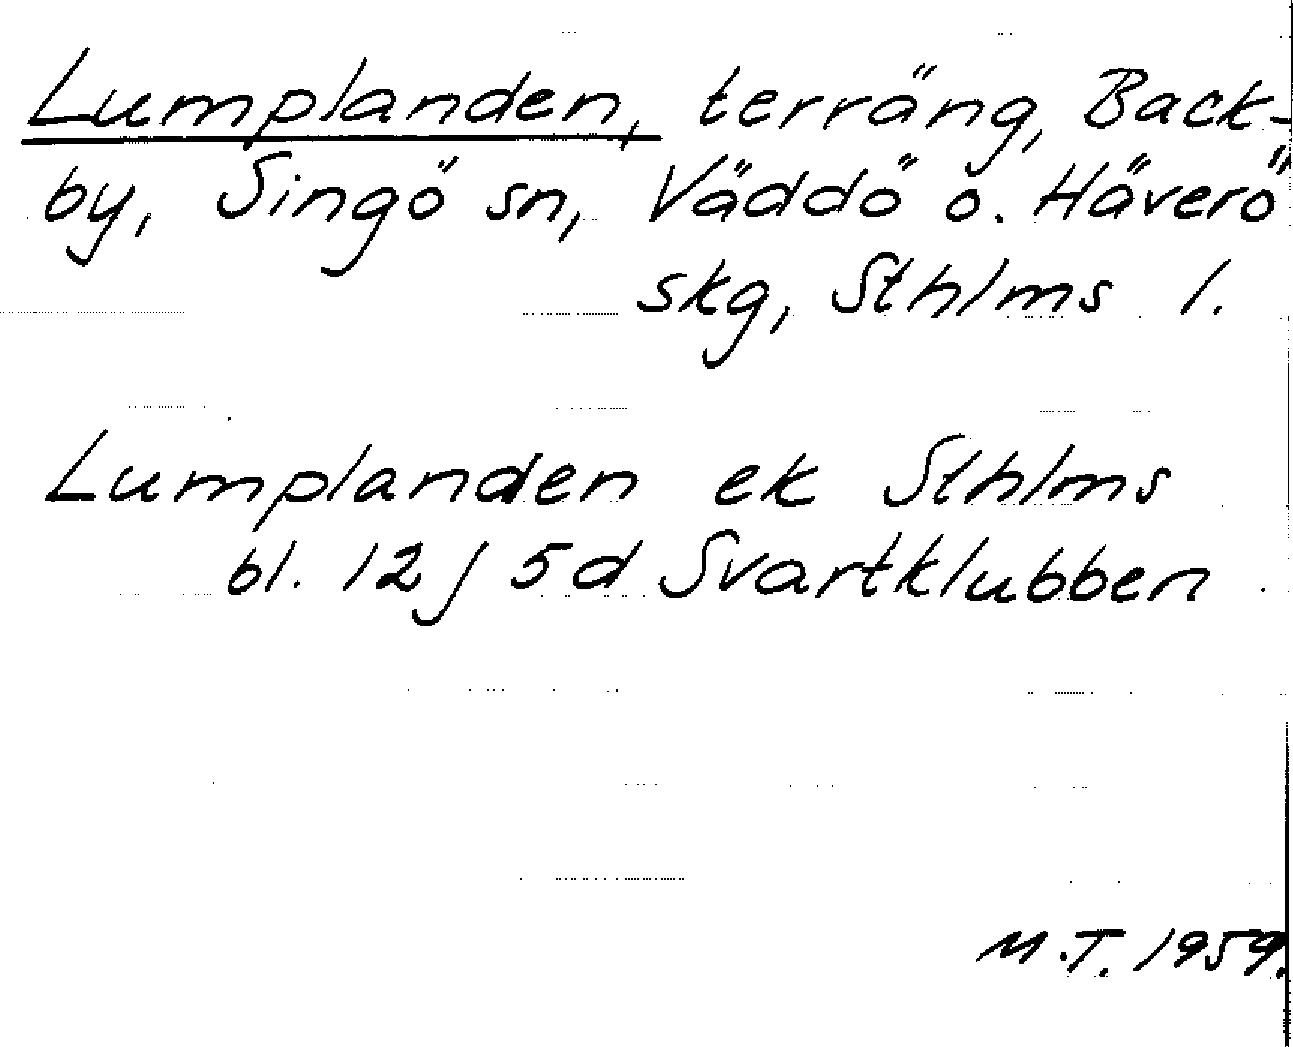 Lumplanden, terräng, Back-
by, Singö sn, Väddö o. Häverö
skg, Sthlms l.
Lumplanden ek Sthlms
bl. 12 j 5d Svartklubben
M.T. 1959.